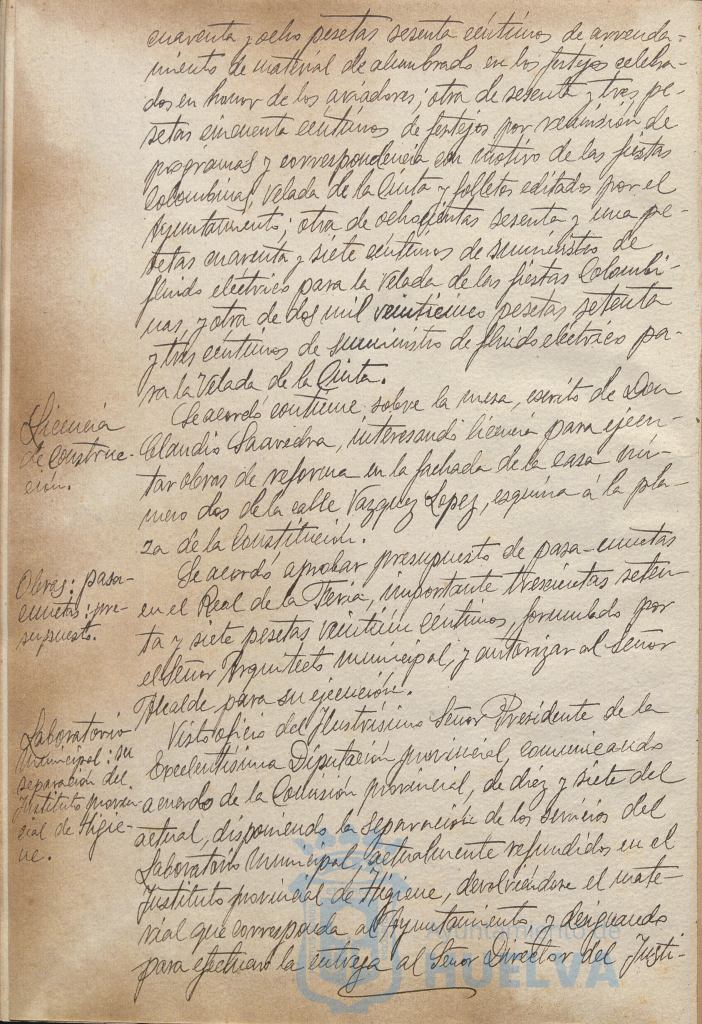 cuarenta y ocho pesetas sesenta céntimos de arrenda-
miento de material de alumbrado en los festejos celebra-
dos en honor de los aviadores; otra de sesenta y tres pe-
setas cincuenta céntimos de festejos por remisión de
programas y correspondencia con motivo de las fiestas
Colombinas, Velada de la Cinta y folletos editados por el
Ayuntamiento; otra de ochocientas sesenta y una pe-
setas cuarenta y siete céntimos de suministro de
fluido eléctrico para la Velada de las fiestas Colombi-
nas, y otra de dos mil veinticinco pesetas setenta
y tres céntimos de suministro de fluido eléctrico pa-
ra la Velada de la Cinta.
Licencia
de construc-
ción.
Se acordó continúe, sobre la mesa, escrito de Don
Claudio Saavedra, interesando licencia para ejecu-
tar obras de reforma en la fachada de la casa nú-
mero dos de la calle Vazquez Lopez, esquina á la pla-
za de la Constitución.
Obras: pasa-
cunetas: pre-
supuesto.
Se acordó aprobar presupuesto de pasa-cunetas
en el Real de la Feria, importante trescientas seten-
ta y siete pesetas veintiun céntimos, formulado por
el Señor Arquitecto municipal, y autorizar al Señor
Alcalde para su ejecución.
Laboratorio
municipal: su
separación del
Instituto provin-
cial de Higie-
ne.
Visto oficio del Ilustrísimo Señor Presidente de la
Excelentísima Diputación provincial, comunicando
acuerdo de la Comisión provincial, de diez y siete del
actual, disponiendo la separación de los servicios del
Laboratorio municipal, actualmente refundidos en el
Instituto provincial de Higiene, devolviéndose el mate-
rial que corresponda al Ayuntamiento, y designando
para efectuar la entrega al Señor Director del Insti-
Ayuntamiento de
HUELVA